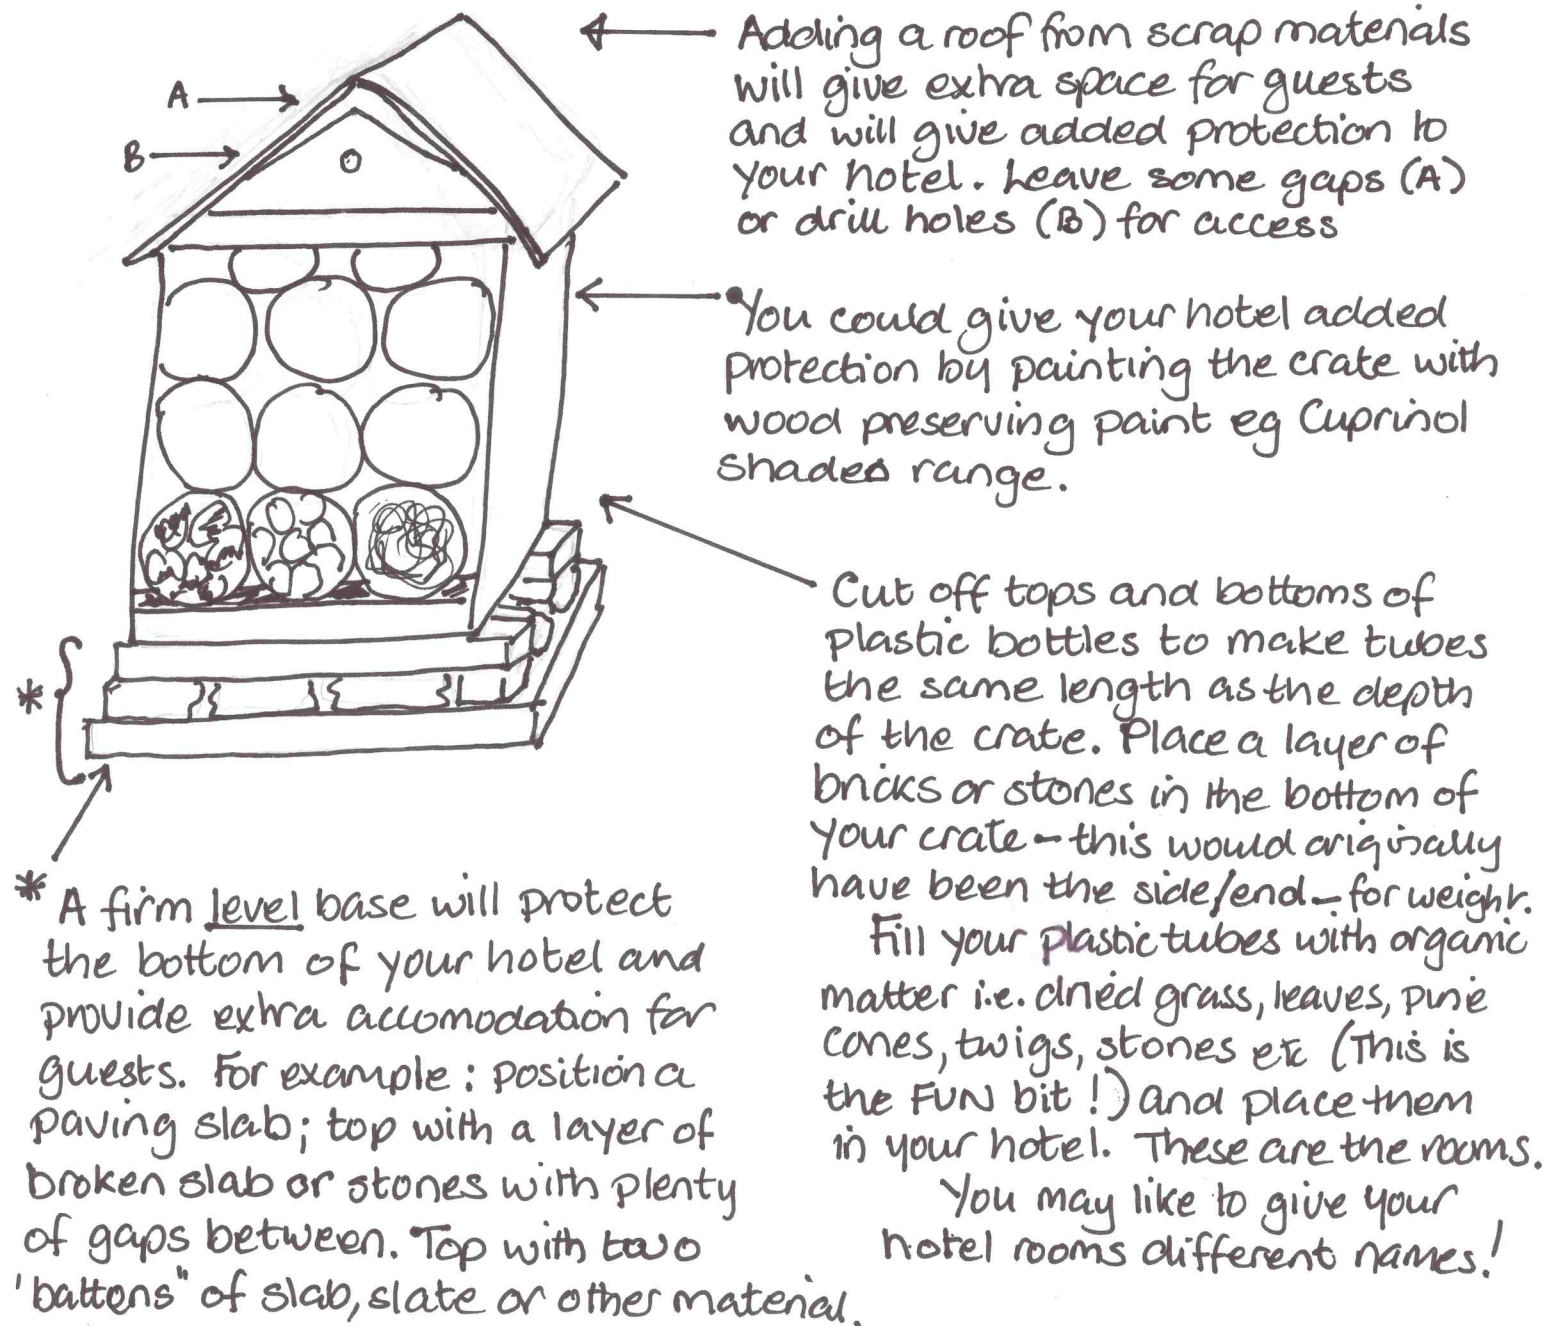 Adding a roof from scrap materials
will give extra space for guests
and will give added protection to
your hotel. Leave some gaps (A)
or drill holes (B) for access
A
B
You could give your hotel added
protection by painting the crate with
wood preserving paint eg Cuprinol
shades range.
Cut off tops and bottoms of
plastic bottles to make tubes
the same length as the depth
of the crate. Place a layer of
bricks or stones in the bottom of
your crate – this would originally
have been the side/end – for weight.
Fill your plastic tubes with organic
matter i.e. dried grass, leaves, pine
cones, twigs, stones etc (This is
the FUN bit!) and place them
in your hotel. These are the rooms.
You may like to give your
hotel rooms different names!
*
* A firm level base will protect
the bottom of your hotel and
provide extra accomodation for
guests. For example: position a
paving slab; top with a layer of
broken slab or stones with plenty
of gaps between. Top with two
'battens" of slab, slate or other material.